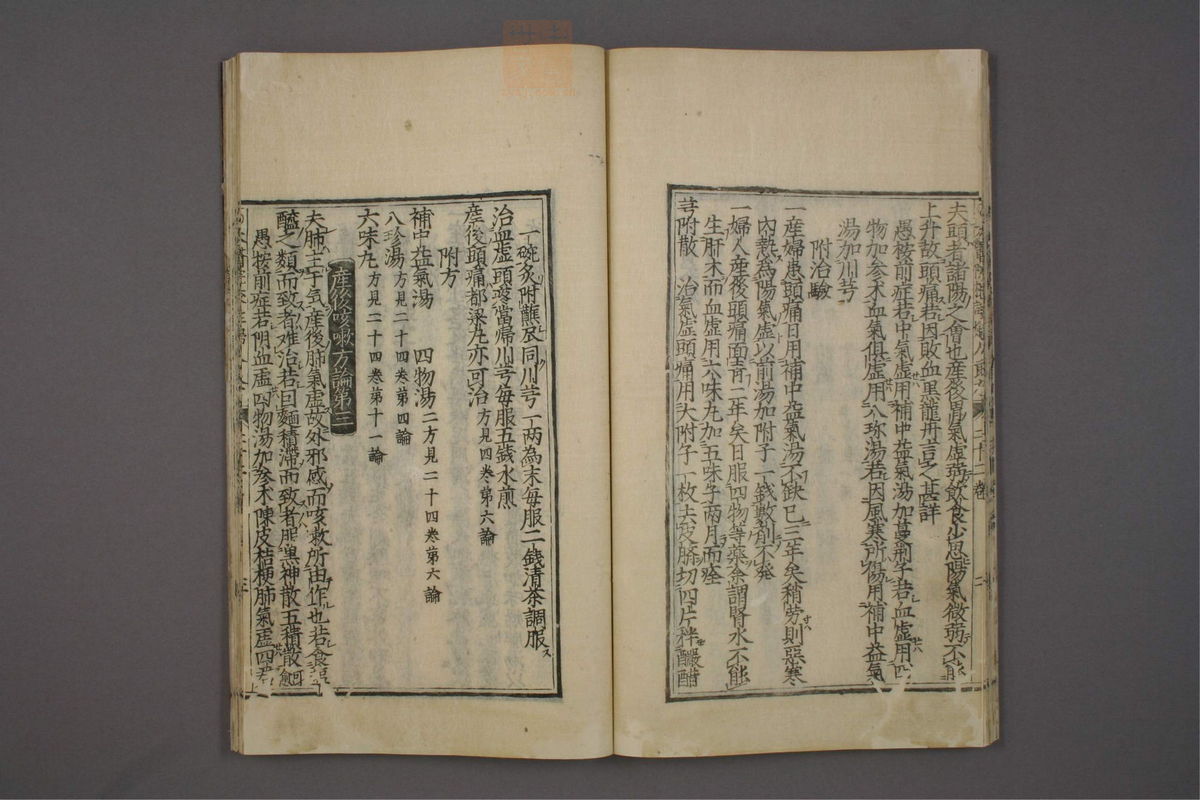 夫頭者諸陽之會也産後胃氣虛弱飲食少思陽氣微弱不能
上升故頭痛若因敗血黒龍丹言之甚詳
愚按前症若中氣虛用補中益氣湯加蔓荊子若血虛用四
物加参朮血氣俱虛用八珍湯若因風寒所傷用補中益氣
湯加川芎
附治驗
一産婦患頭痛日用補中益氣湯不缺已三年矣稍劳則惡寒
内熱為陽氣虛以前湯加附子一錢數劑不發
一婦人産後頭痛面青二年矣日服四物等藥余謂腎水不能
生肝木而血虛用六味丸加五味子兩月而痊
芎附散 治氣虛頭痛用大附子一枚去皮臍切四片秤釅醋
一碗炙附蘸尽同川芎一兩為末毎服二錢清茶調服
治血虛頭疼當帰川芎毎服五錢水煎
産後頭痛都梁丸亦可治方見四卷第六論
附方
補中益氣湯 四物湯二方見二十四卷第六論
八珍湯方見二十四卷第四論
六味丸方見二十四卷第十一論
産後咳嗽方論第三
夫肺主于气産後肺氣虛故外邪感而咳嗽所由作也若食
醯之類而致者难治若因麵積滯而致者服黒神散五積散
愚按前症若阴血虛四物湯加参朮陳皮桔梗肺氣虛四君